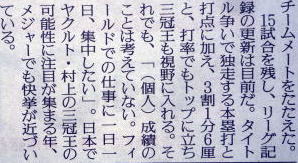 チームメートをたたえた。
　15試合を残し、リーグ記
録の更新は目前だ。タイト
ル争いで独走する本塁打と
打点に加え、3割1分6厘
と、打率でもトップに立ち
三冠王も視野に入れる。そ
れでも、「(個人)成績の
ことは考えていない。フィ
ールドでの仕事に一日一
日、集中したい」。日本で
ヤクルト・村上の三冠王の
可能性に注目が集まる年、
メジャーでも快挙が近づい
ている。